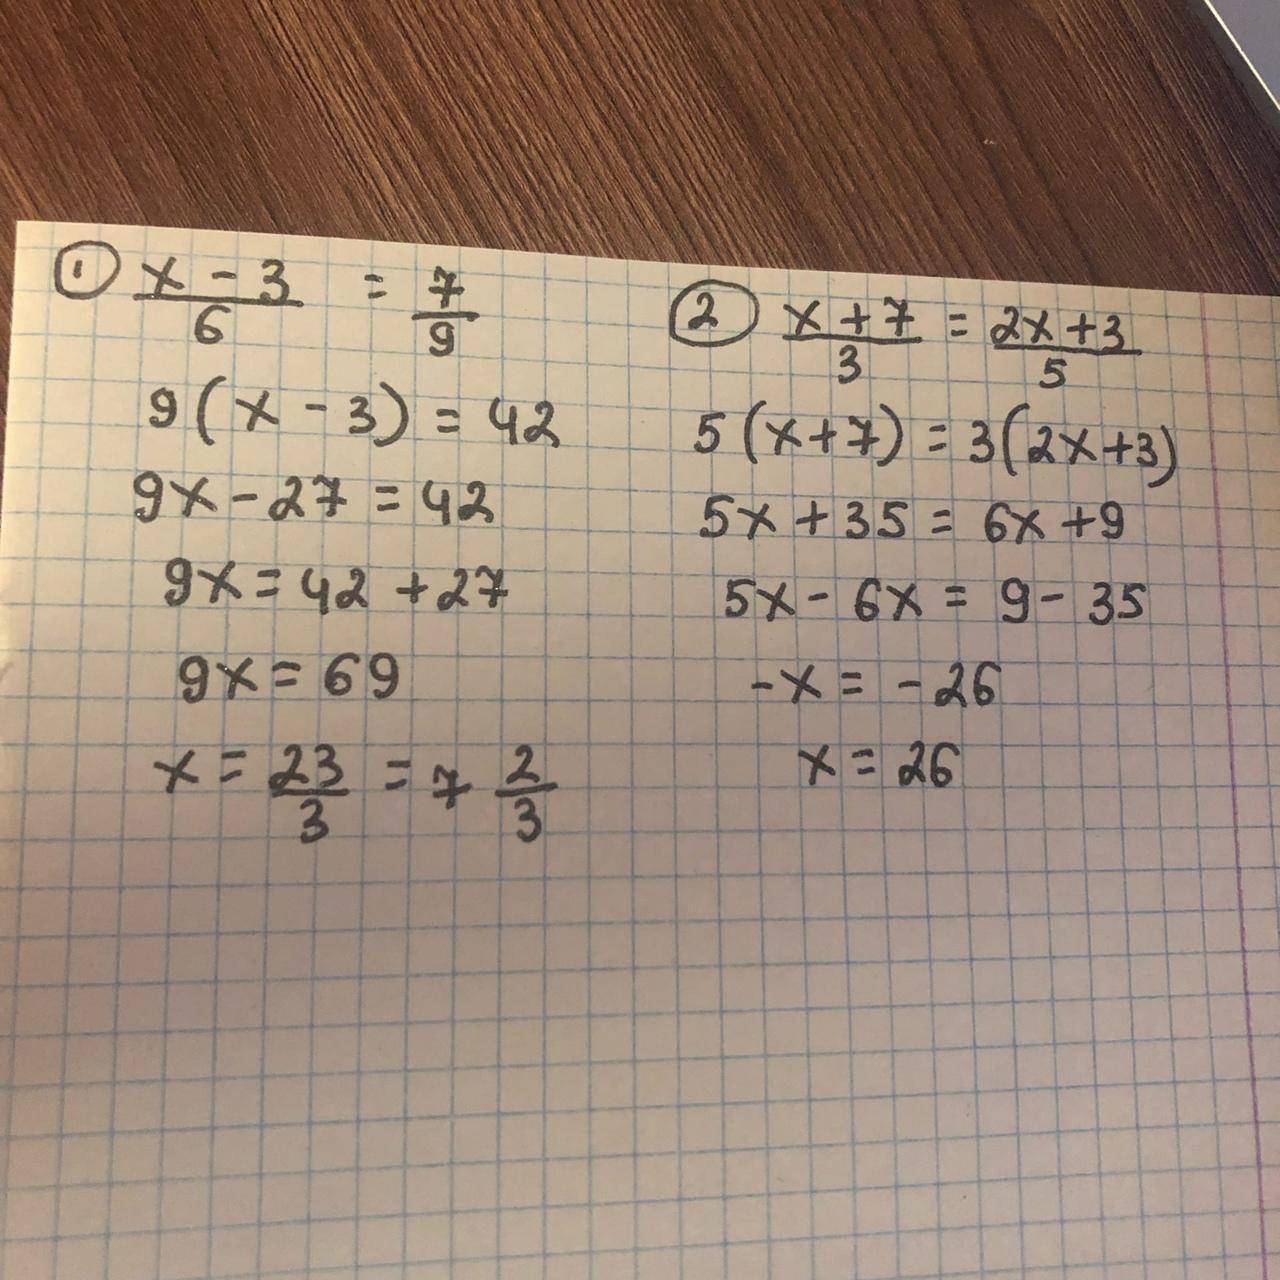 ① x - 3 / 6 = 7 / 9
9(x - 3) = 42
9x - 27 = 42
9x = 42 + 27
9x = 69
x = 23 / 3 = 7 2 / 3
② x + 7 / 3 = 2x + 3 / 5
5(x + 7) = 3(2x + 3)
5x + 35 = 6x + 9
5x - 6x = 9 - 35
-x = -26
x = 26